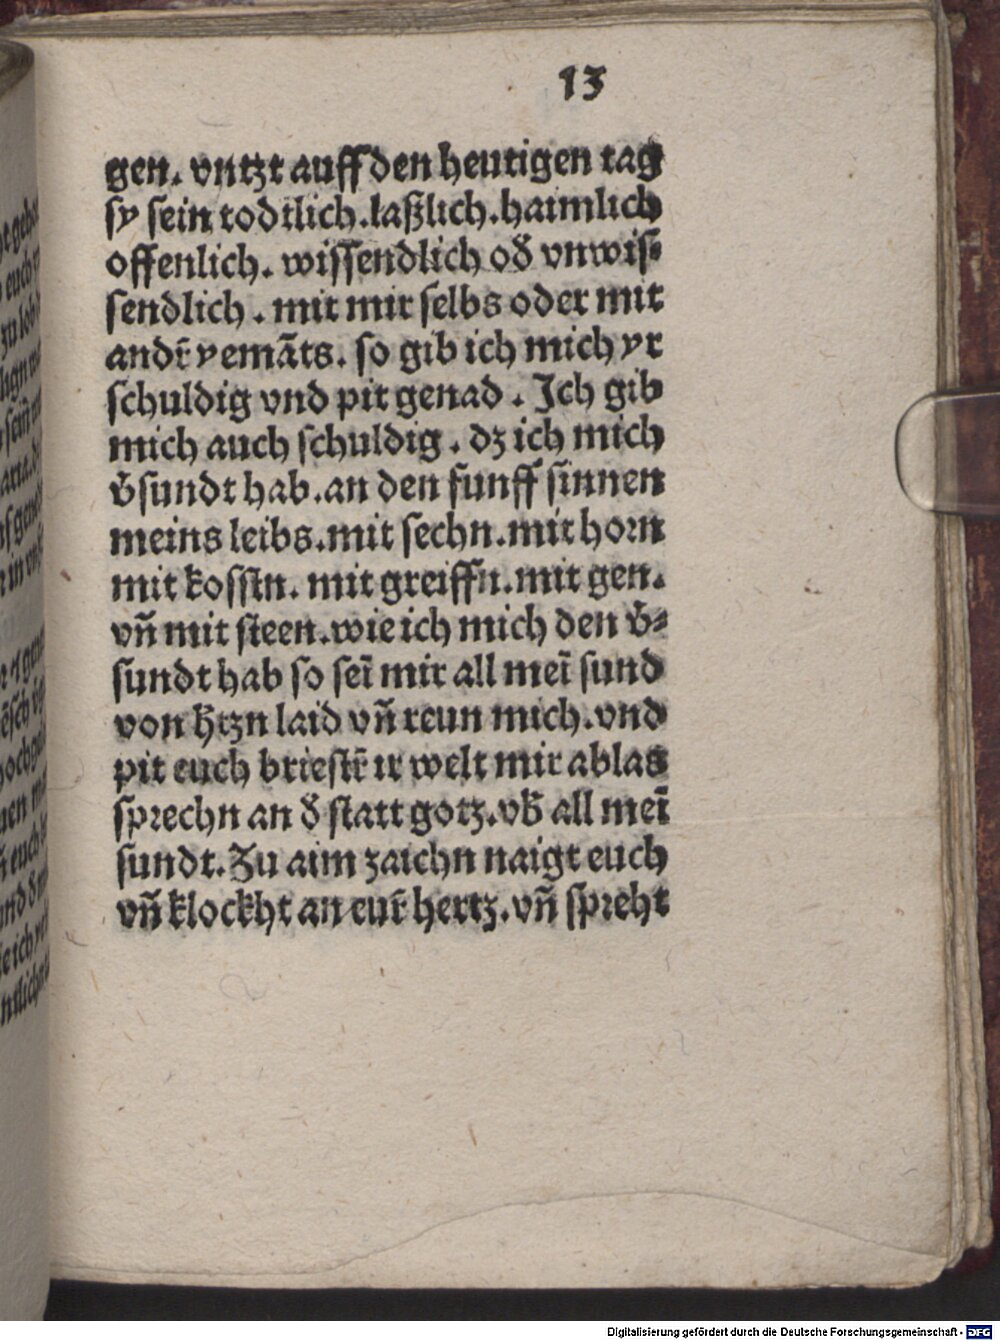 13
gen. vntzt auff den heutigen tag
sy sein todtlich. laßlich. haimlich
offenlich. wissendlich od̄ vnwis⸗
sendlich. mit mir selbs oder mit
andr̄ yemāts. so gib ich mich yr
schuldig vnd pit genad. Ich gib
mich auch schuldig. dz ich mich
v̄sundt hab. an den funff sinnen
meins leibs. mit sechn. mit horn
mit kosstn. mit greiffn. mit gen.
vn̄ mit steen. wie ich mich den v̄⸗
sundt hab so seī mir all meī sund
von h̄tzn laid vn̄ reun mich. vnd
pit euch briestr̄ ir welt mir ablas
sprechn an d̄ statt gotz. vb̄ all meī
sundt. Zu aim zaichn naigt euch
vn̄ klockht an eur̄ hertz. vn̄ spreht
Digitalisierung gefördert durch die Deutsche Forschungsgemeinschaft - DFG